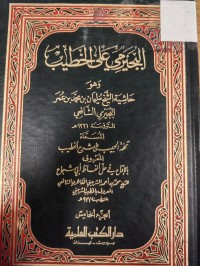 البجيرمي على الخطيب
وهو
حاشية الشيخ سليمان بن محمد بن عمر
البجيرمي الشافعي
المتوفى سنة ١٢٢١هـ
المسماة
تحفة الحبيب على شرح الخطيب
المعروف
بالإقناع في حل ألفاظ أبي شجاع
الجزء الخامس
دار الكتب العلمية